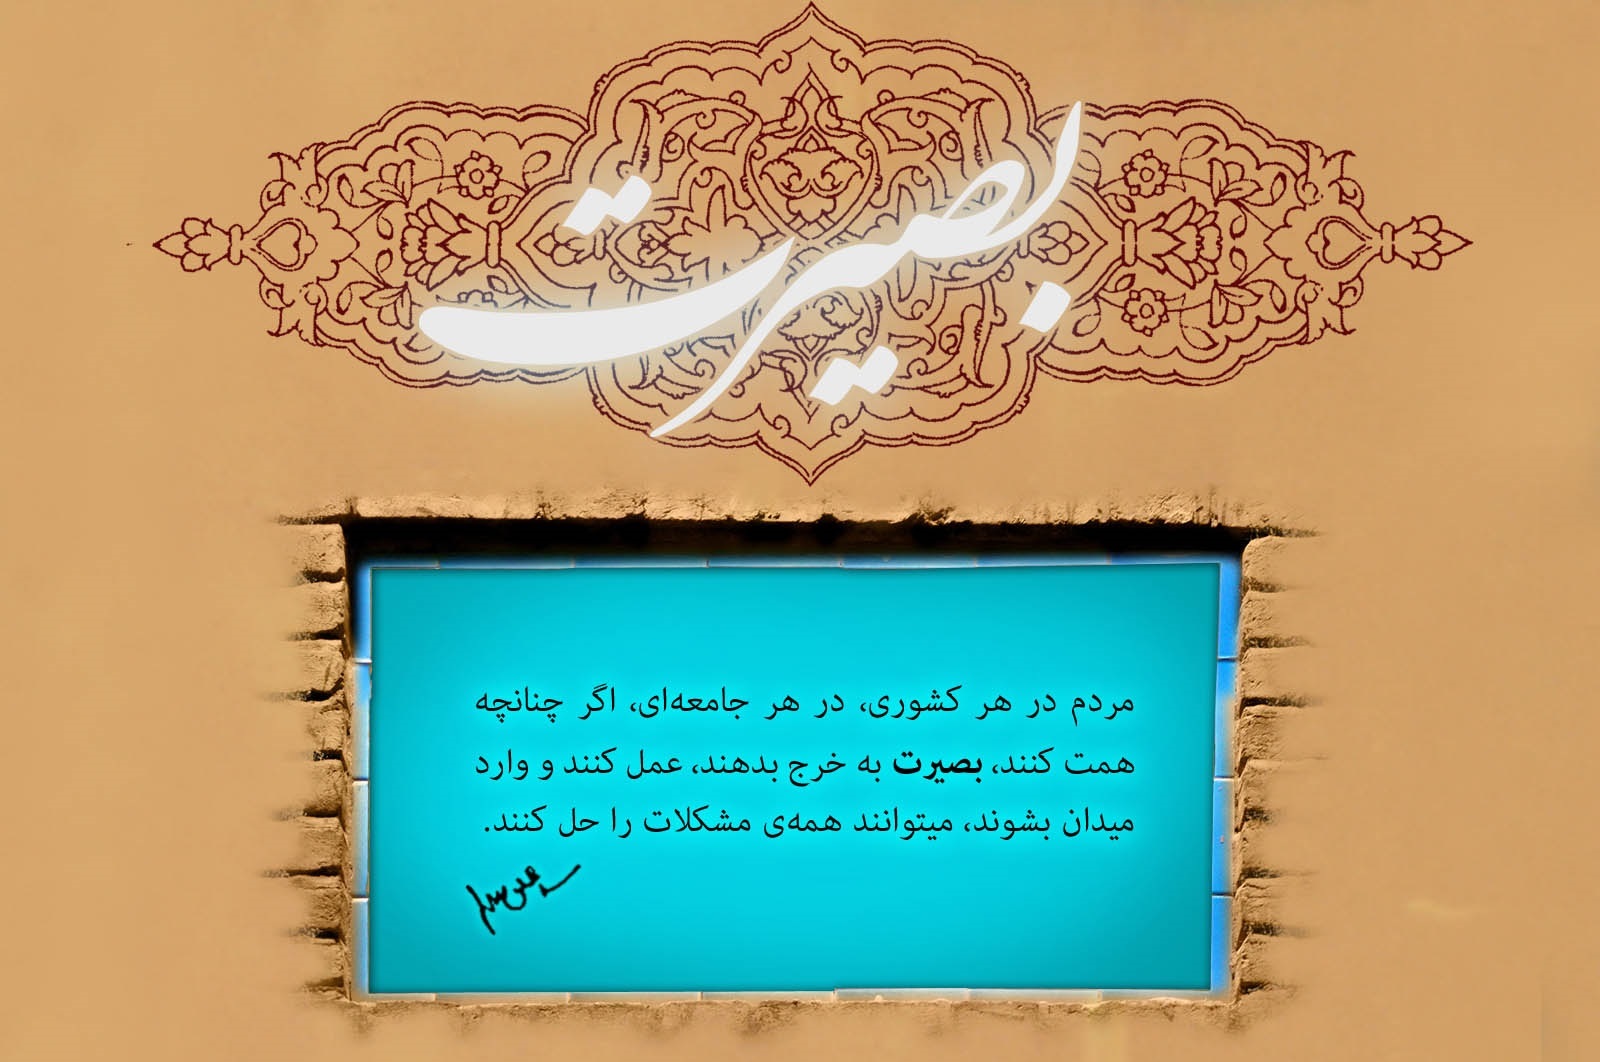 بصیرت
مردم در هر کشوری، در هر جامعه‌ای، اگر چنانچه
همت کنند، بصیرت به خرج بدهند، عمل کنند و وارد
میدان بشوند، میتوانند همه‌ی مشکلات را حل کنند.